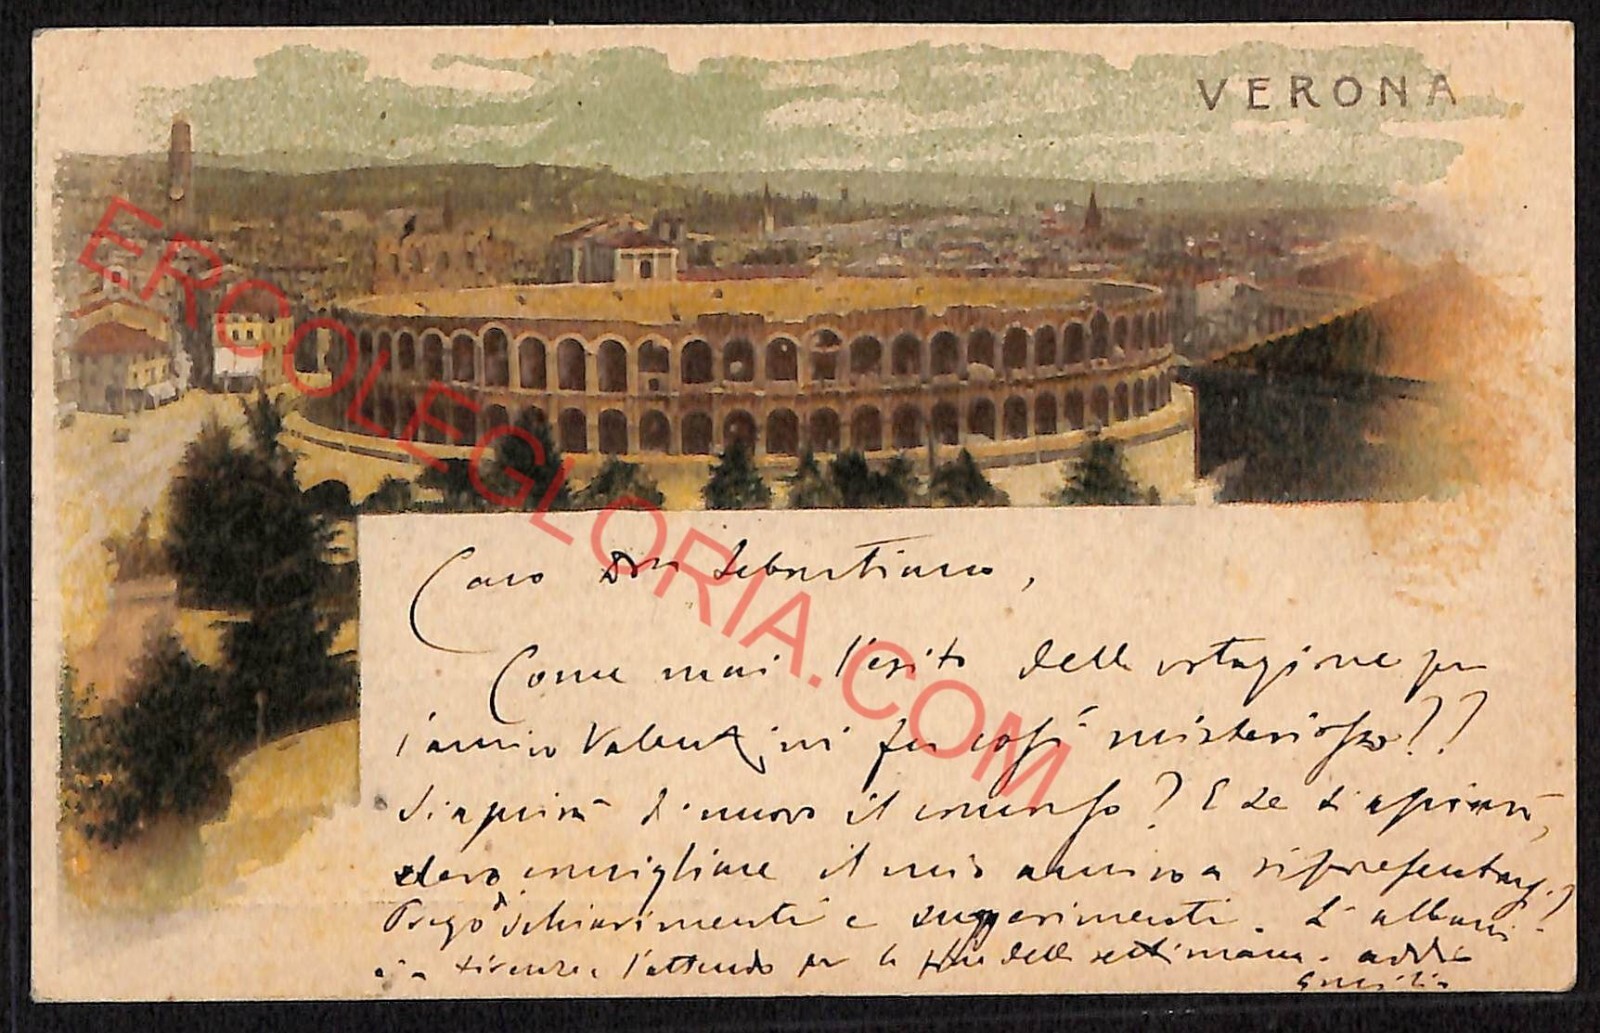 VERONA
ERCOLEGLORIA.COM
Caro Don Sebastiano,
Come mai l'esito della votazione per
l'amico Valentini fu così misterioso??
Si aprirà di nuovo il concorso? E se si aprirà,
devo consigliare il mio amico a ripresentarsi?
Prego schiarimenti e suggerimenti. L'
è a Firenze, l'attendo per la fine della settimana. addio
Emilio